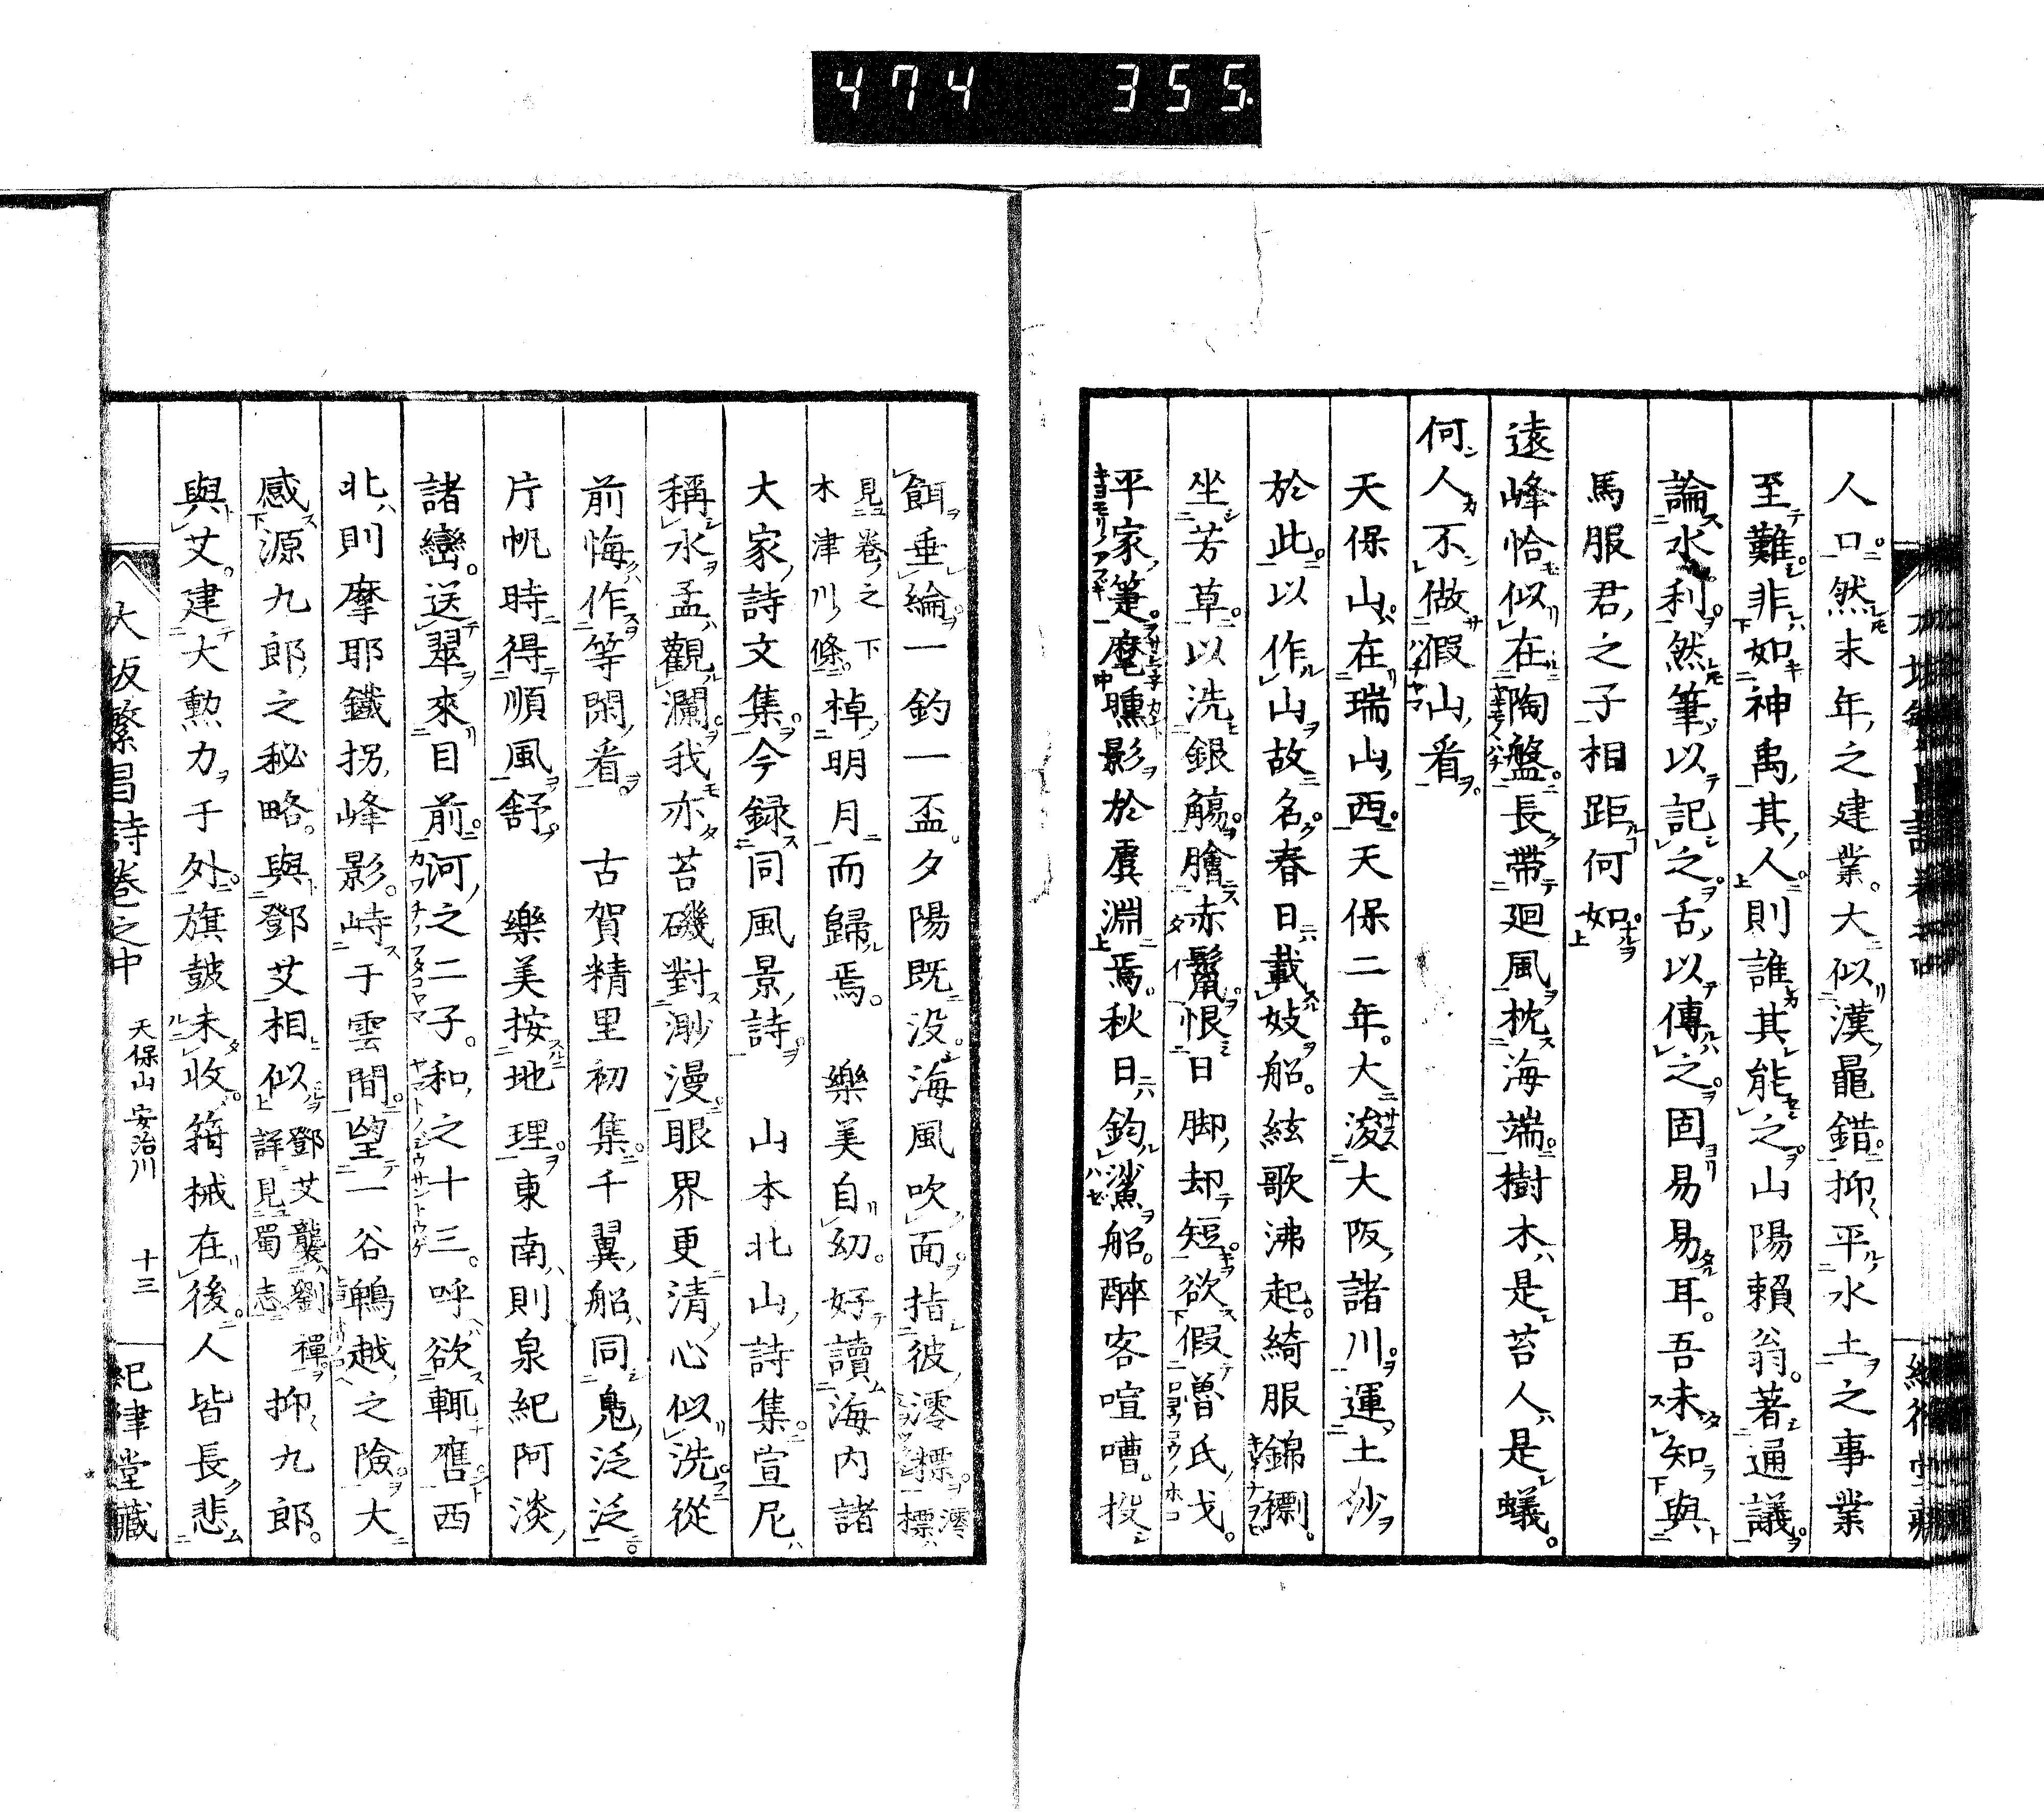 474 355.
人口然末年之建業大似漢鼂錯抑平水土之事業
至難非如神禹其人則誰其能之山陽賴翁著通議
論水利然筆以記之舌以傳之固易易耳吾未知與
馬服君之子相距何如
遠峰恰似在陶盤長帶廻風枕海端樹木是苔人是蟻
何人不做假山看
天保山在瑞山西天保二年大浚大阪諸川運土沙
於此以作山故名春日載妓船絃歌沸起綺服錦
坐芳草以洗銀觴膾赤鬣恨日脚却短欲假魯氏戈
平家箑麾曛影於虞淵焉秋日鈎鯊船醉客喧嘈投
餌垂綸一釣一盃夕陽既没海風吹面指彼澪標澪標
見巻之下木津川條棹明月而歸焉 樂美自幼好讀海内諸
大家詩文集今録同風景詩 山本北山詩集宣尼
稱水孟觀瀾我亦苔磯對渺漫眼界更清心似洗從
前悔作等閑看 古賀精里初集千翼船同鳧泛泛
片帆時得順風舒 樂美按地理東南則泉紀阿淡
諸巒送翠來目前河之二子和之十三呼欲輒譍西
北則摩耶鐵拐峰影峙于雲間望一谷鵯越之險大
感源九郎之秘略與鄧艾相似鄧艾襲劉禪詳見蜀志抑九郎
與艾建大勲力于外旗皷未收箝械在後人皆長悲
大坂繁昌詩巻之中 天保山 安治川 十三 紀律堂藏